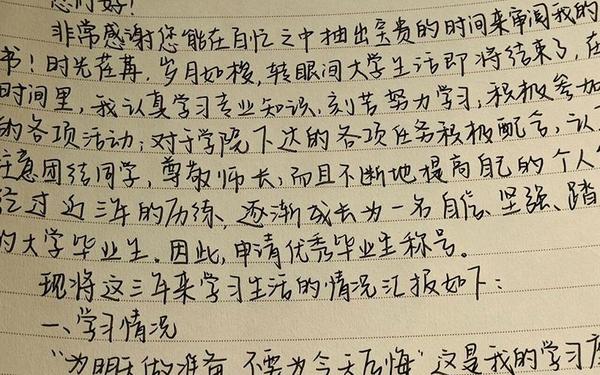 您们好!
非常感谢您能在百忙之中抽出宝贵的时间来审阅我的
书!时光荏苒,岁月如梭,转眼间大学生活即将结束了,在
时间里,我认真学习专业知识,刻苦努力学习,积极参加
的各项活动;对于学院下达的各项任务积极配合,认
注意团结同学,尊敬师长,而且不断地提高自己的个人
经过近三年的历练、逐渐成长为一名自信、坚强、踏
的大学毕业生。因此,申请优秀毕业生称号。
现将这三年来学习生活的情况汇报如下:
一、学习情况
"为明天做准备,不要为今天后悔"这是我的学习座